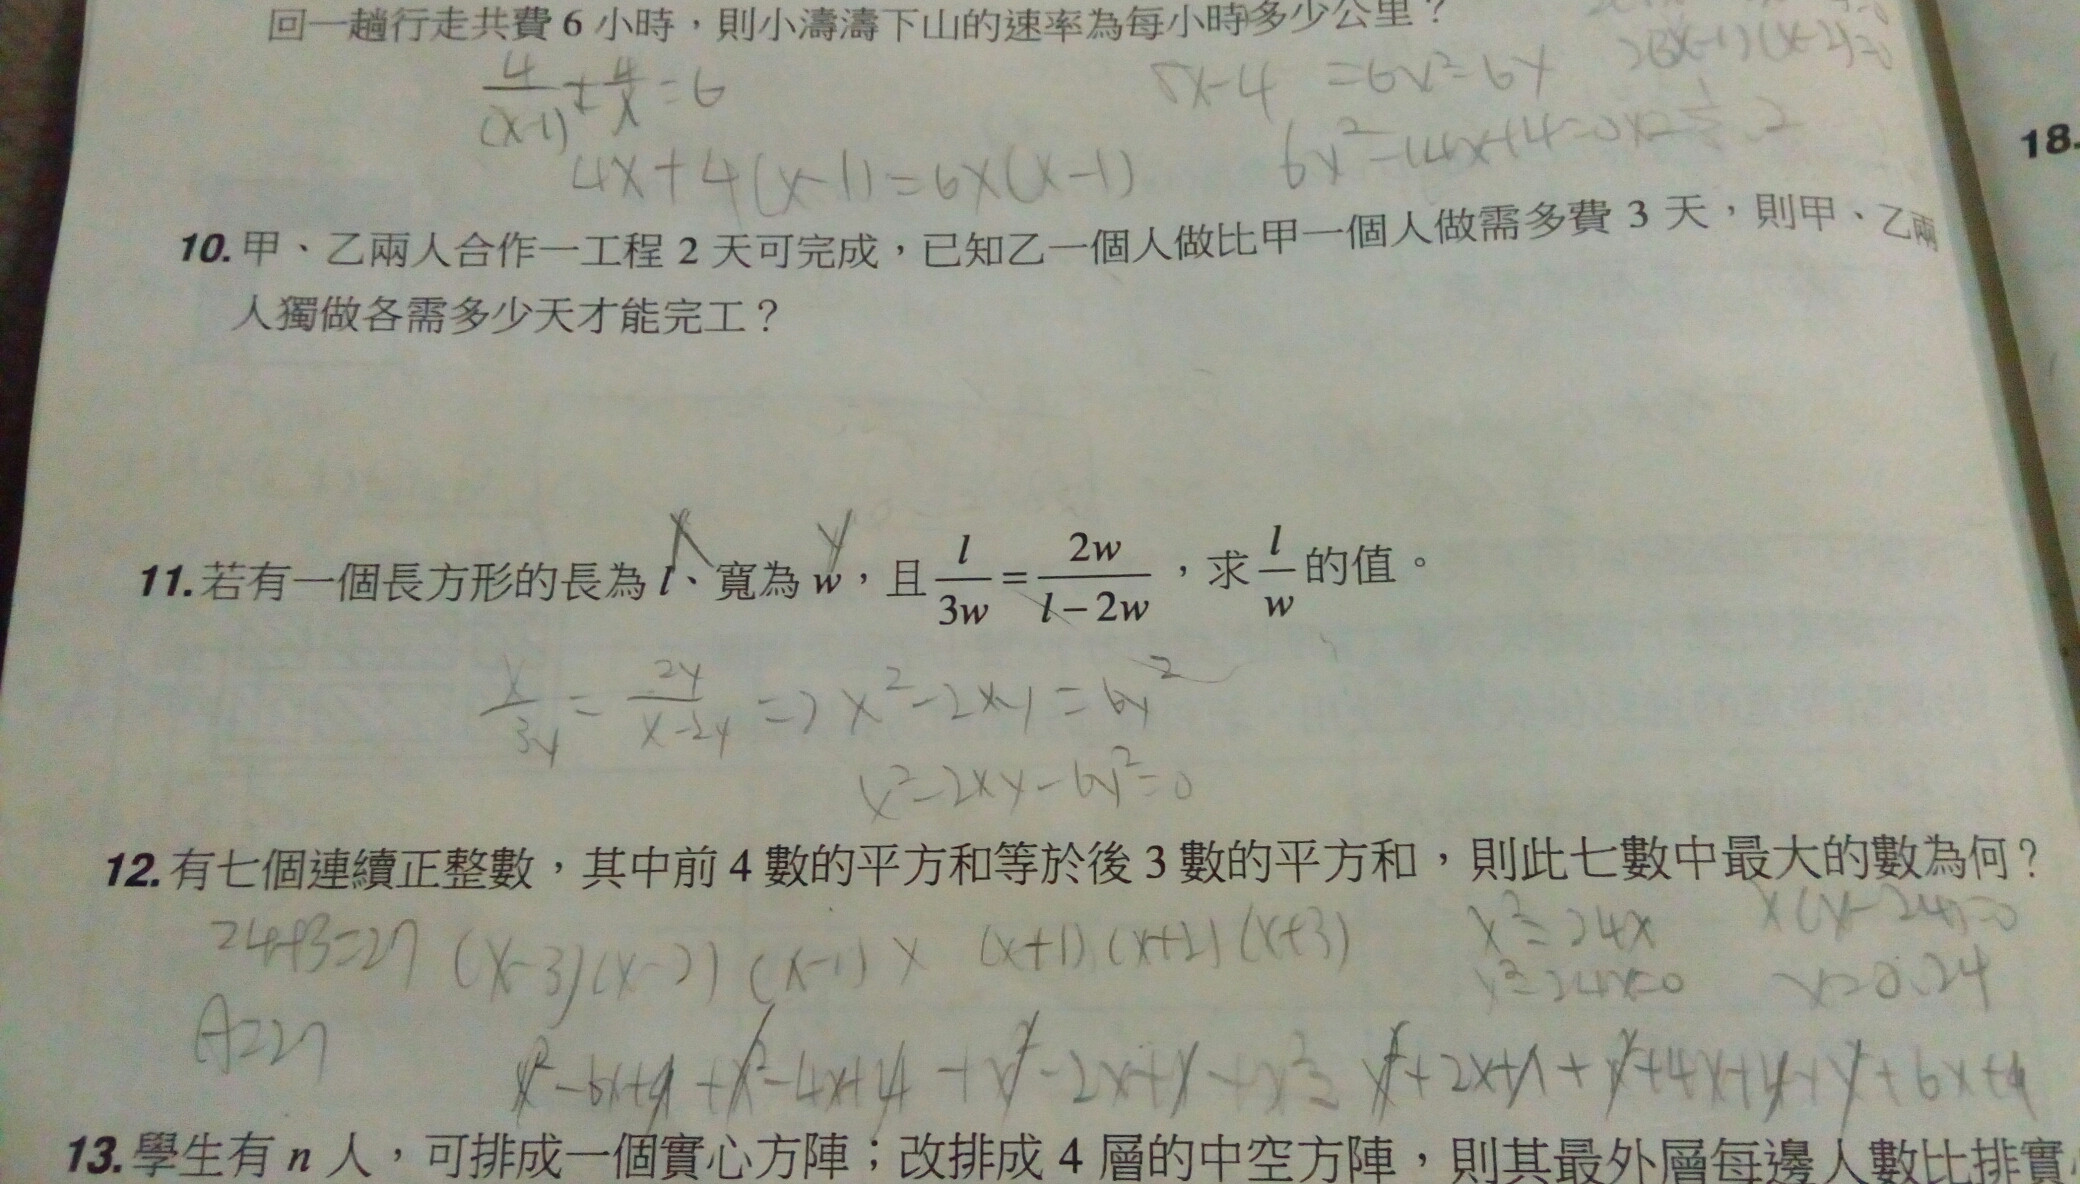 回一趟行走共費 6 小時，則小濤濤下山的速率為每小時多少公里？
4/(x-1) + 4/x = 6
8x-4 = 6x²-6x
4x+4(x-1)=6x(x-1)
6x²-14x+4=0
18.
10. 甲、乙兩人合作一工程 2 天可完成，已知乙一個人做比甲一個人做需多費 3 天，則甲、乙兩
人獨做各需多少天才能完工？
x y
11. 若有一個長方形的長為 l、寬為 w，且 l/3w = 2w/(l-2w)，求 l/w 的值。
x/3y = 2y/(x-2y) => x²-2xy=6y²
x²-2xy-6y²=0
12. 有七個連續正整數，其中前 4 數的平方和等於後 3 數的平方和，則此七數中最大的數為何？
24+3=27 (x-3)(x-2)(x-1) x (x+1)(x+2)(x+3) x²=24x x(x-24)=0
A=27 x²-24x=0 x=0.24
x²-6x+9+x²-4x+4+x²-2x+1+x²=x²+2x+1+x²+4x+4+x²+6x+9
13. 學生有 n 人，可排成一個實心方陣；改排成 4 層的中空方陣，則其最外層每邊人數比排實